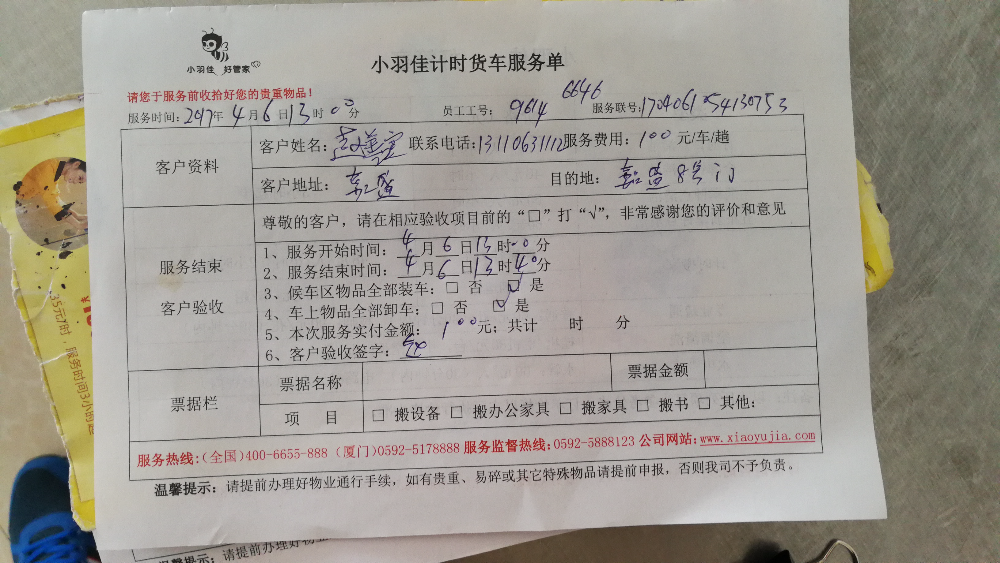 小羽佳 好管家
小羽佳计时货车服务单
请您于服务前收拾好您的贵重物品!
服务时间: 2017年 4月 6日 13时 00分 员工工号: 9614 6646 服务联号: 1704061254130753
客户资料
客户姓名: 联系电话: 13110631112 服务费用: 100 元/车/趟
客户地址: 嘉盛 目的地: 嘉盛8号门
服务结束
客户验收
尊敬的客户,请在相应验收项目前的“□”打“√”,非常感谢您的评价和意见
1、服务开始时间: 4月 6日 13时 00分
2、服务结束时间: 4月 6日 13时 40分
3、候车区物品全部装车: □ 否 ☑ 是
4、车上物品全部卸车: □ 否 ☑ 是
5、本次服务实付金额: 100元; 共计 时 分
6、客户验收签字:
票据栏
票据名称 票据金额
项 目 □ 搬设备 □ 搬办公家具 □ 搬家具 □ 搬书 □ 其他:
服务热线:(全国)400-6655-888 (厦门)0592-5178888 服务监督热线:0592-5888123 公司网站:www.xiaoyujia.com
温馨提示: 请提前办理好物业通行手续,如有贵重、易碎或其它特殊物品请提前申报,否则我司不予负责。
35元/时,服务时间3小时起
温馨提示: 请提前办理好物业